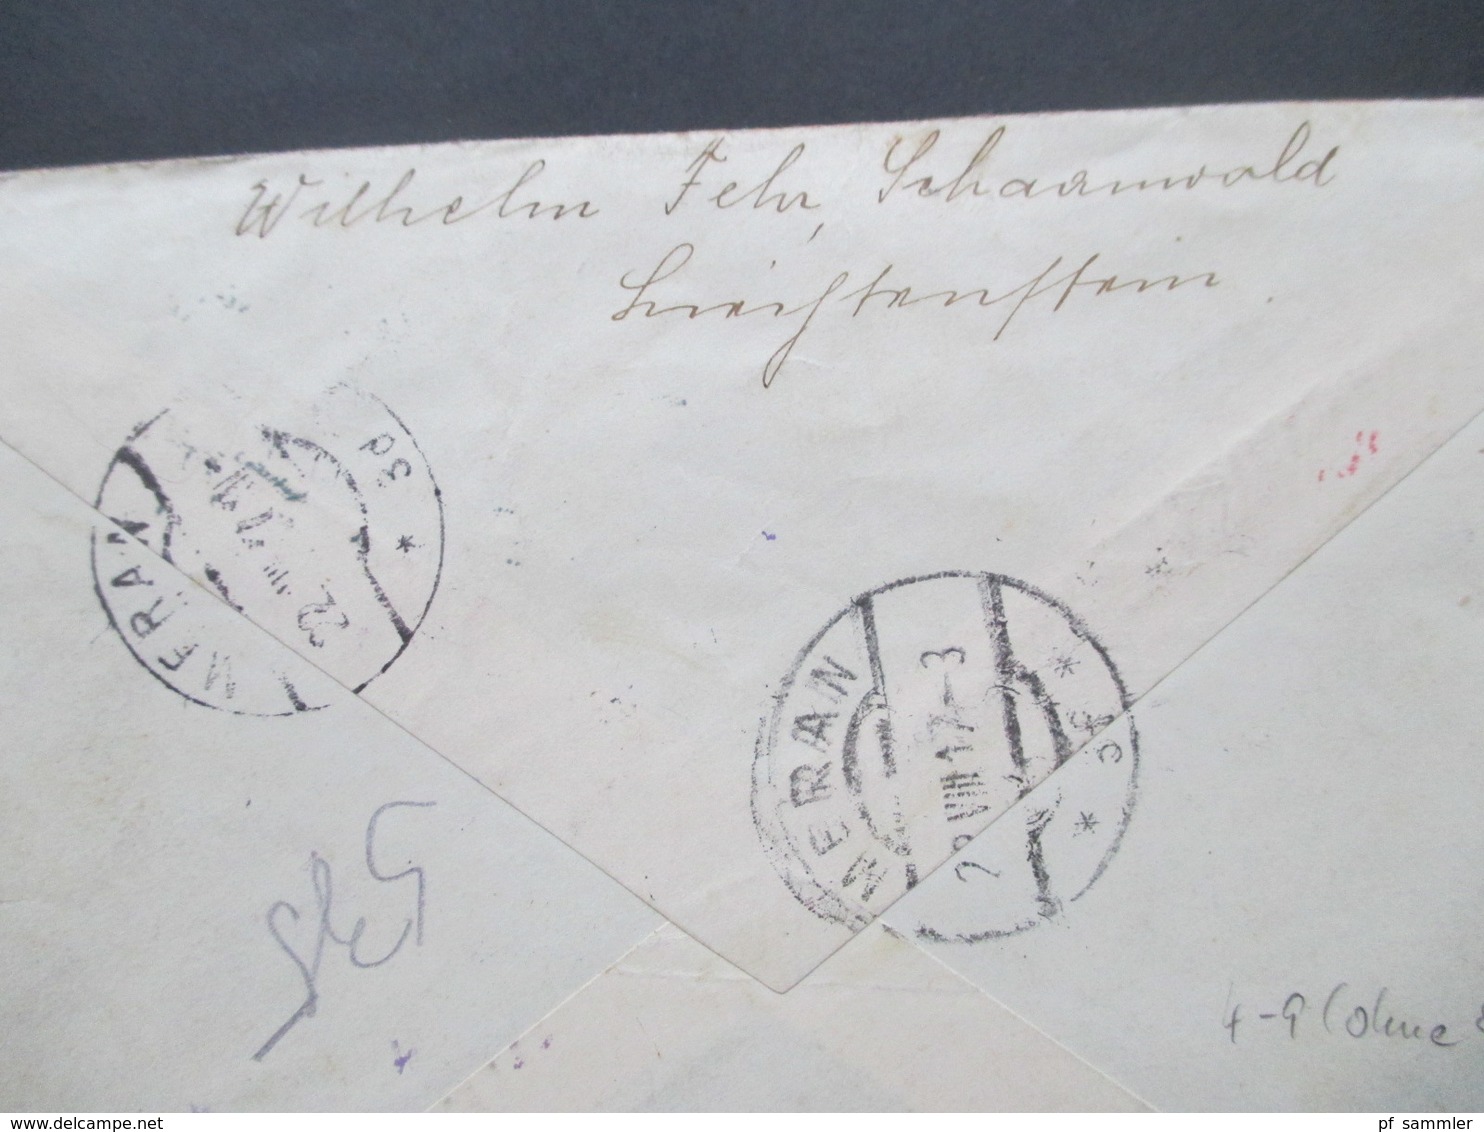 Wilhelm Fehr, Schaanwald
Liechtenstein
MERAN
3d *
22. VIII
MERAN
VIII 17-3
* *
4-9 (ohne
© delcampe.net
pf_sammler